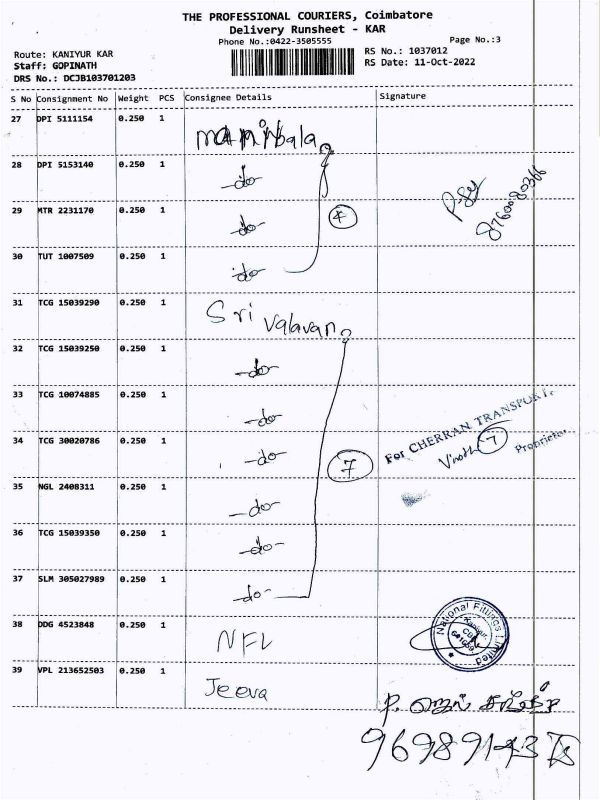 THE PROFESSIONAL COURIERS, Coimbatore
Delivery Runsheet - KAR
Phone No.:0422-3505555
Page No.:3
Route: KANIYUR KAR
Staff: GOPINATH
DRS No.: DCJB103701203
RS No.: 1037012
RS Date: 11-Oct-2022
S No Consignment No Weight PCS Consignee Details Signature
27 DPI 5111154 0.250 1
28 DPI 5153140 0.250 1 -do-
29 MTR 2231170 0.250 1 -do-
30 TUT 1007509 0.250 1 -do-
4
8760080366
31 TCG 15039290 0.250 1 Sri Valavan
32 TCG 15039250 0.250 1 -do-
33 TCG 10074885 0.250 1 -do-
34 TCG 30020786 0.250 1 -do-
7
For CHERRAN TRANSPORT,
Vinoth 7 Proprietor
35 NGL 2408311 0.250 1 -do-
36 TCG 15039350 0.250 1 -do-
37 SLM 305027989 0.250 1 -do-
38 DDG 4523848 0.250 1 NFL
National Fittings Limited
Kaniyur,
39 VPL 213652503 0.250 1 Jeeva